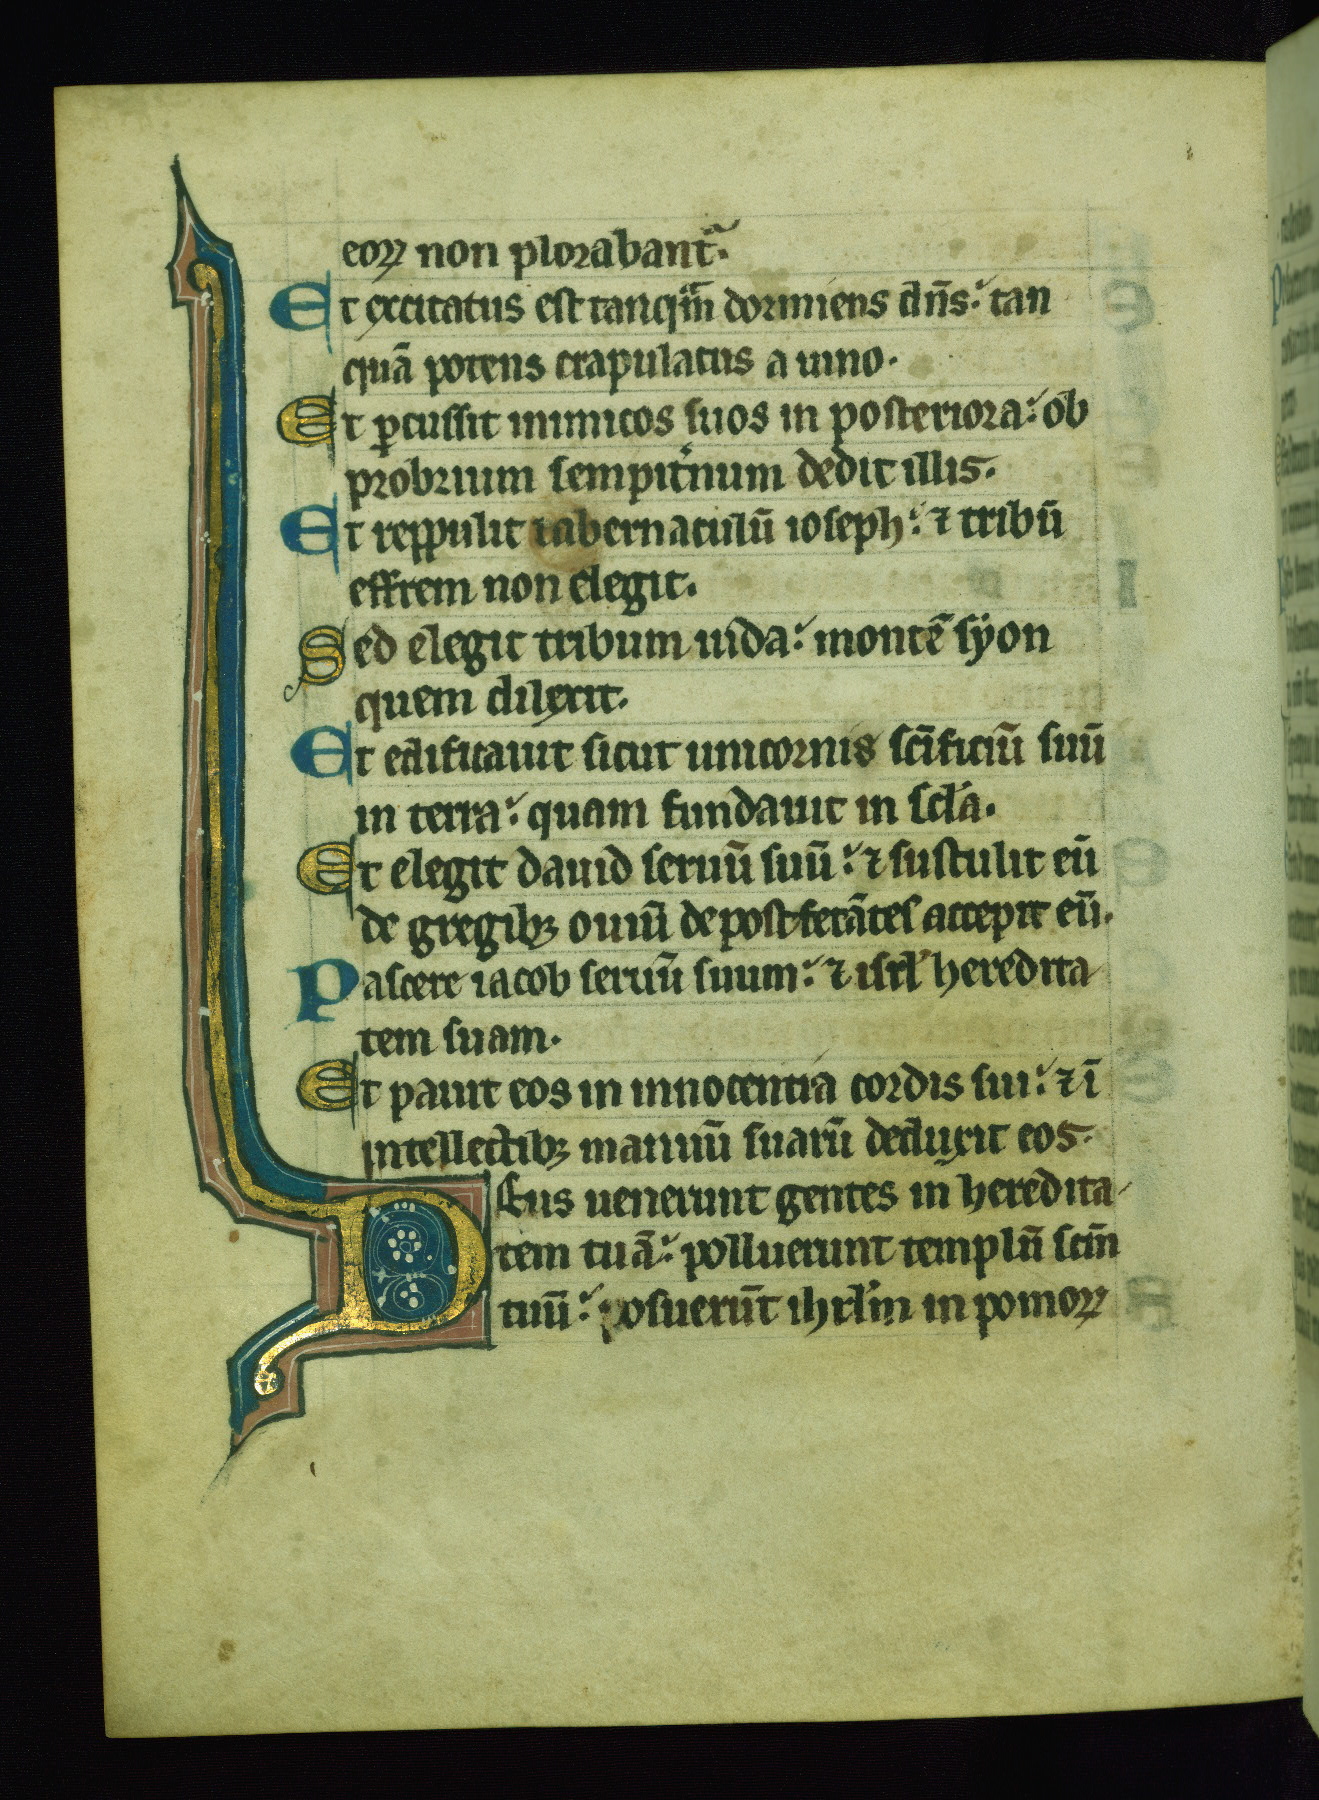 eoꝝ non plorabant᷑.
Et excitatus est tanqᷓm dormiens dn̄s: tan
quā potens crapulatus a uino.
Et ꝑcussit inimicos suos in posteriora: ob
probrium sempit̾num dedit illis.
Et reppulit tabernaculū ioseph: ⁊ tribū
effrem non elegit.
Sed elegit tribum iuda: montē syon
quem dilexit.
Et edificauit sicut unicornis sc̄ificiū suū
in terra: quam fundauit in scl̾a.
Et elegit dauid seruū suū: ⁊ sustulit eū
de gregibꝫ ouiū de post fetātes accepit eū.
Pascere iacob seruū suum: ⁊ isrl̾ heredita
tem suam.
Et pauit eos in innocentia cordis sui: ⁊ ī
intellectibꝫ manuū suarū deduxit eos.
Deus uenerunt gentes in heredita
tem tuā: polluerunt templū scm̄
tuū: posuerūt ihrl̾m in pomoꝝ